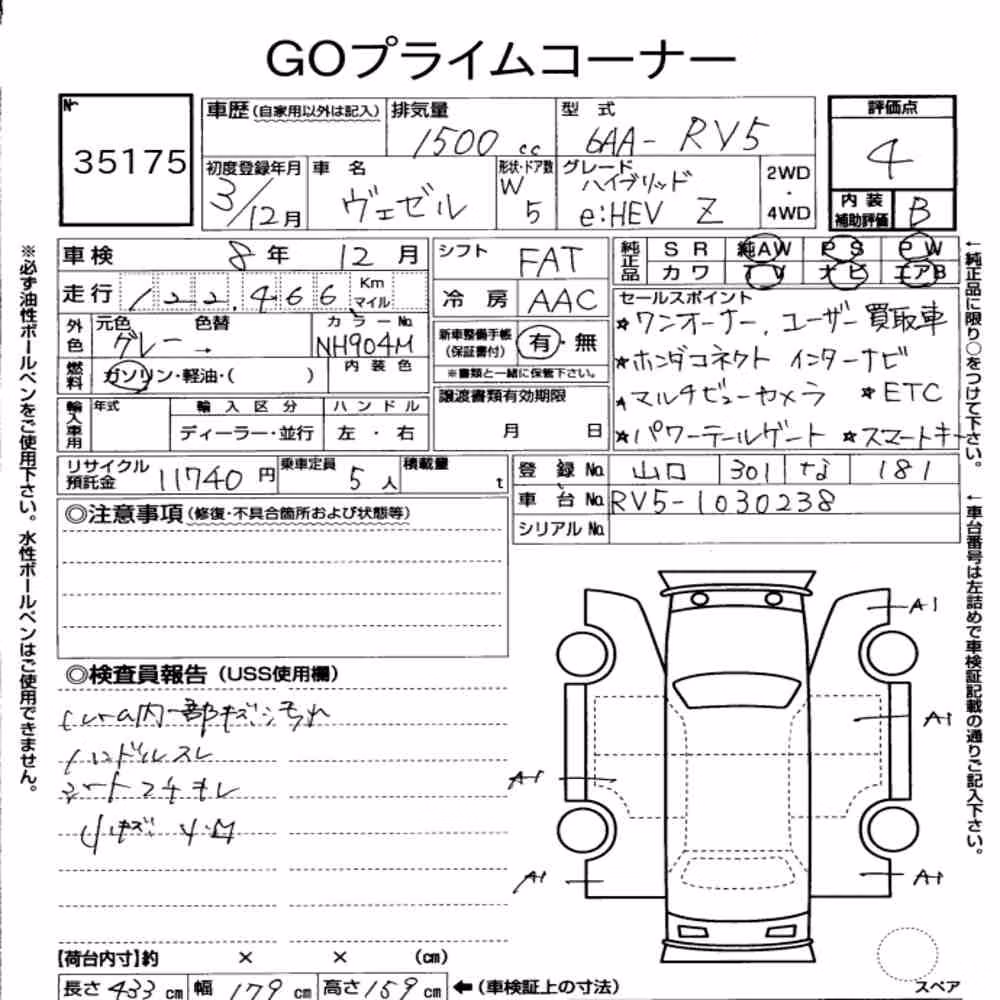 GOプライムコーナー
№
35175
車歴(自家用以外は記入) 排気量 1500 cc 型式 6AA-RV5 評価点 4
初度登録年月 3/12月 車名 ヴェゼル 形状・ドア数 W 5 グレード ハイブリッド e:HEV Z 2WD・4WD 内装補助評価 B
車検 8年 12月 シフト FAT 純正品 SR 純AW PS PW
カワ TV ナビ エアB
走行 122,466 Km マイル 冷房 AAC
セールスポイント
外色 元色 グレー → 色替 カラーNo. NH904M 新車整備手帳(保証書付) 有・無
★ワンオーナー、ユーザー買取車
燃料 ガソリン・軽油・( ) 内装色 ※書類と一緒に保管下さい。
★ホンダコネクト インターナビ
輸入車用 年式 輸入区分 ハンドル 譲渡書類有効期限
★マルチビューカメラ ★ETC
ディーラー・並行 左・右 月 日
★パワーテールゲート ★スマートキー
リサイクル預託金 11740円 乗車定員 5人 積載量 t 登録No. 山口 301 な 181
車台No. RV5-1030238
シリアルNo.
◎注意事項(修復・不具合箇所および状態等)
◎検査員報告(USS使用欄)
内一部キズ汚れ
ハンドルスレ
シートコゲキレ
小キズ 小凹
A1
A1
A1
A1
A1
【荷台内寸】約 × × (cm)
長さ 433cm 幅 179cm 高さ 159cm ←(車検証上の寸法)
スペア
※必ず油性ボールペンをご使用下さい。水性ボールペンはご使用できません。
←純正品に限り○をつけて下さい。
←車台番号は左詰めで車検証記載の通りご記入下さい。